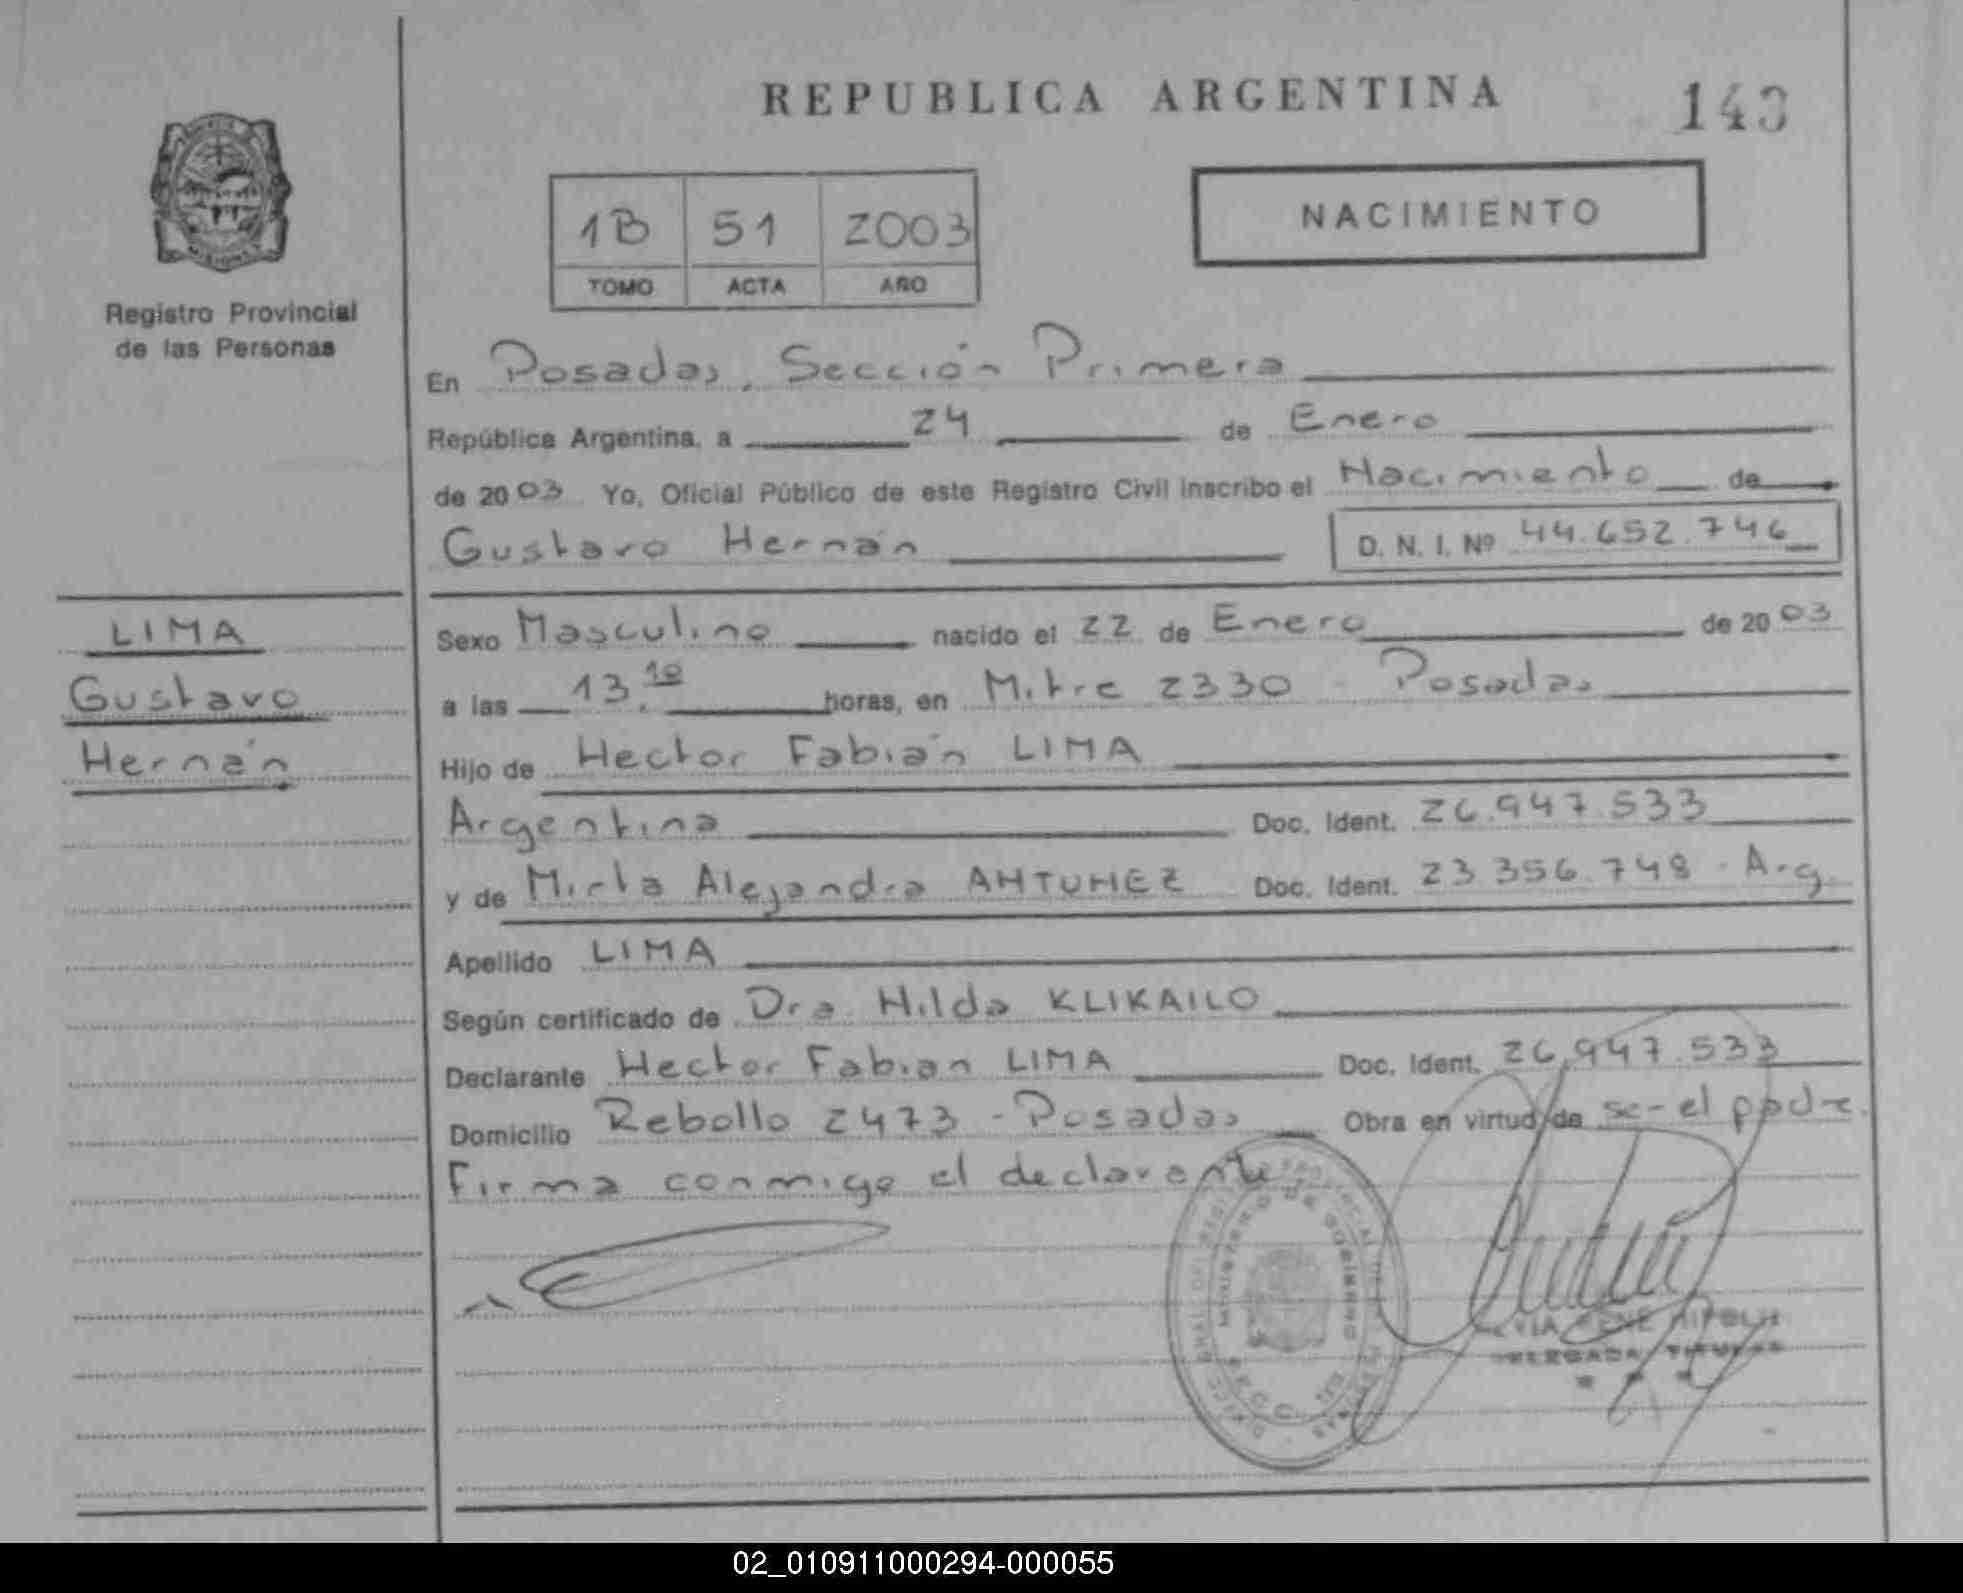 REPUBLICA ARGENTINA
143
1B 51 2003
TOMO ACTA AÑO
NACIMIENTO
Registro Provincial
de las Personas
En Posadas, Sección Primera
República Argentina, a 24 de Enero
de 2003 Yo, Oficial Público de este Registro Civil inscribo el Nacimiento de
Gustavo Hernán D. N. I. Nº 44.652.746
LIMA
Gustavo
Hernán
Sexo Masculino nacido el 22 de Enero de 2003
a las 13.10 horas, en Mitre 2330 - Posadas
Hijo de Hector Fabián LIMA
Argentina Doc. Ident. 26.947.533
y de Mirta Alejandra ANTUNEZ Doc. Ident. 23 356.748 - Arg.
Apellido LIMA
Según certificado de Dra. Hilda KLIKAILO
Declarante Hector Fabian LIMA Doc. Ident. 26.947.533
Domicilio Rebollo 2473 - Posadas Obra en virtud de ser el padre.
Firma conmigo el declarante
RENE
DELEGADA TITULAR
02_010911000294-000055